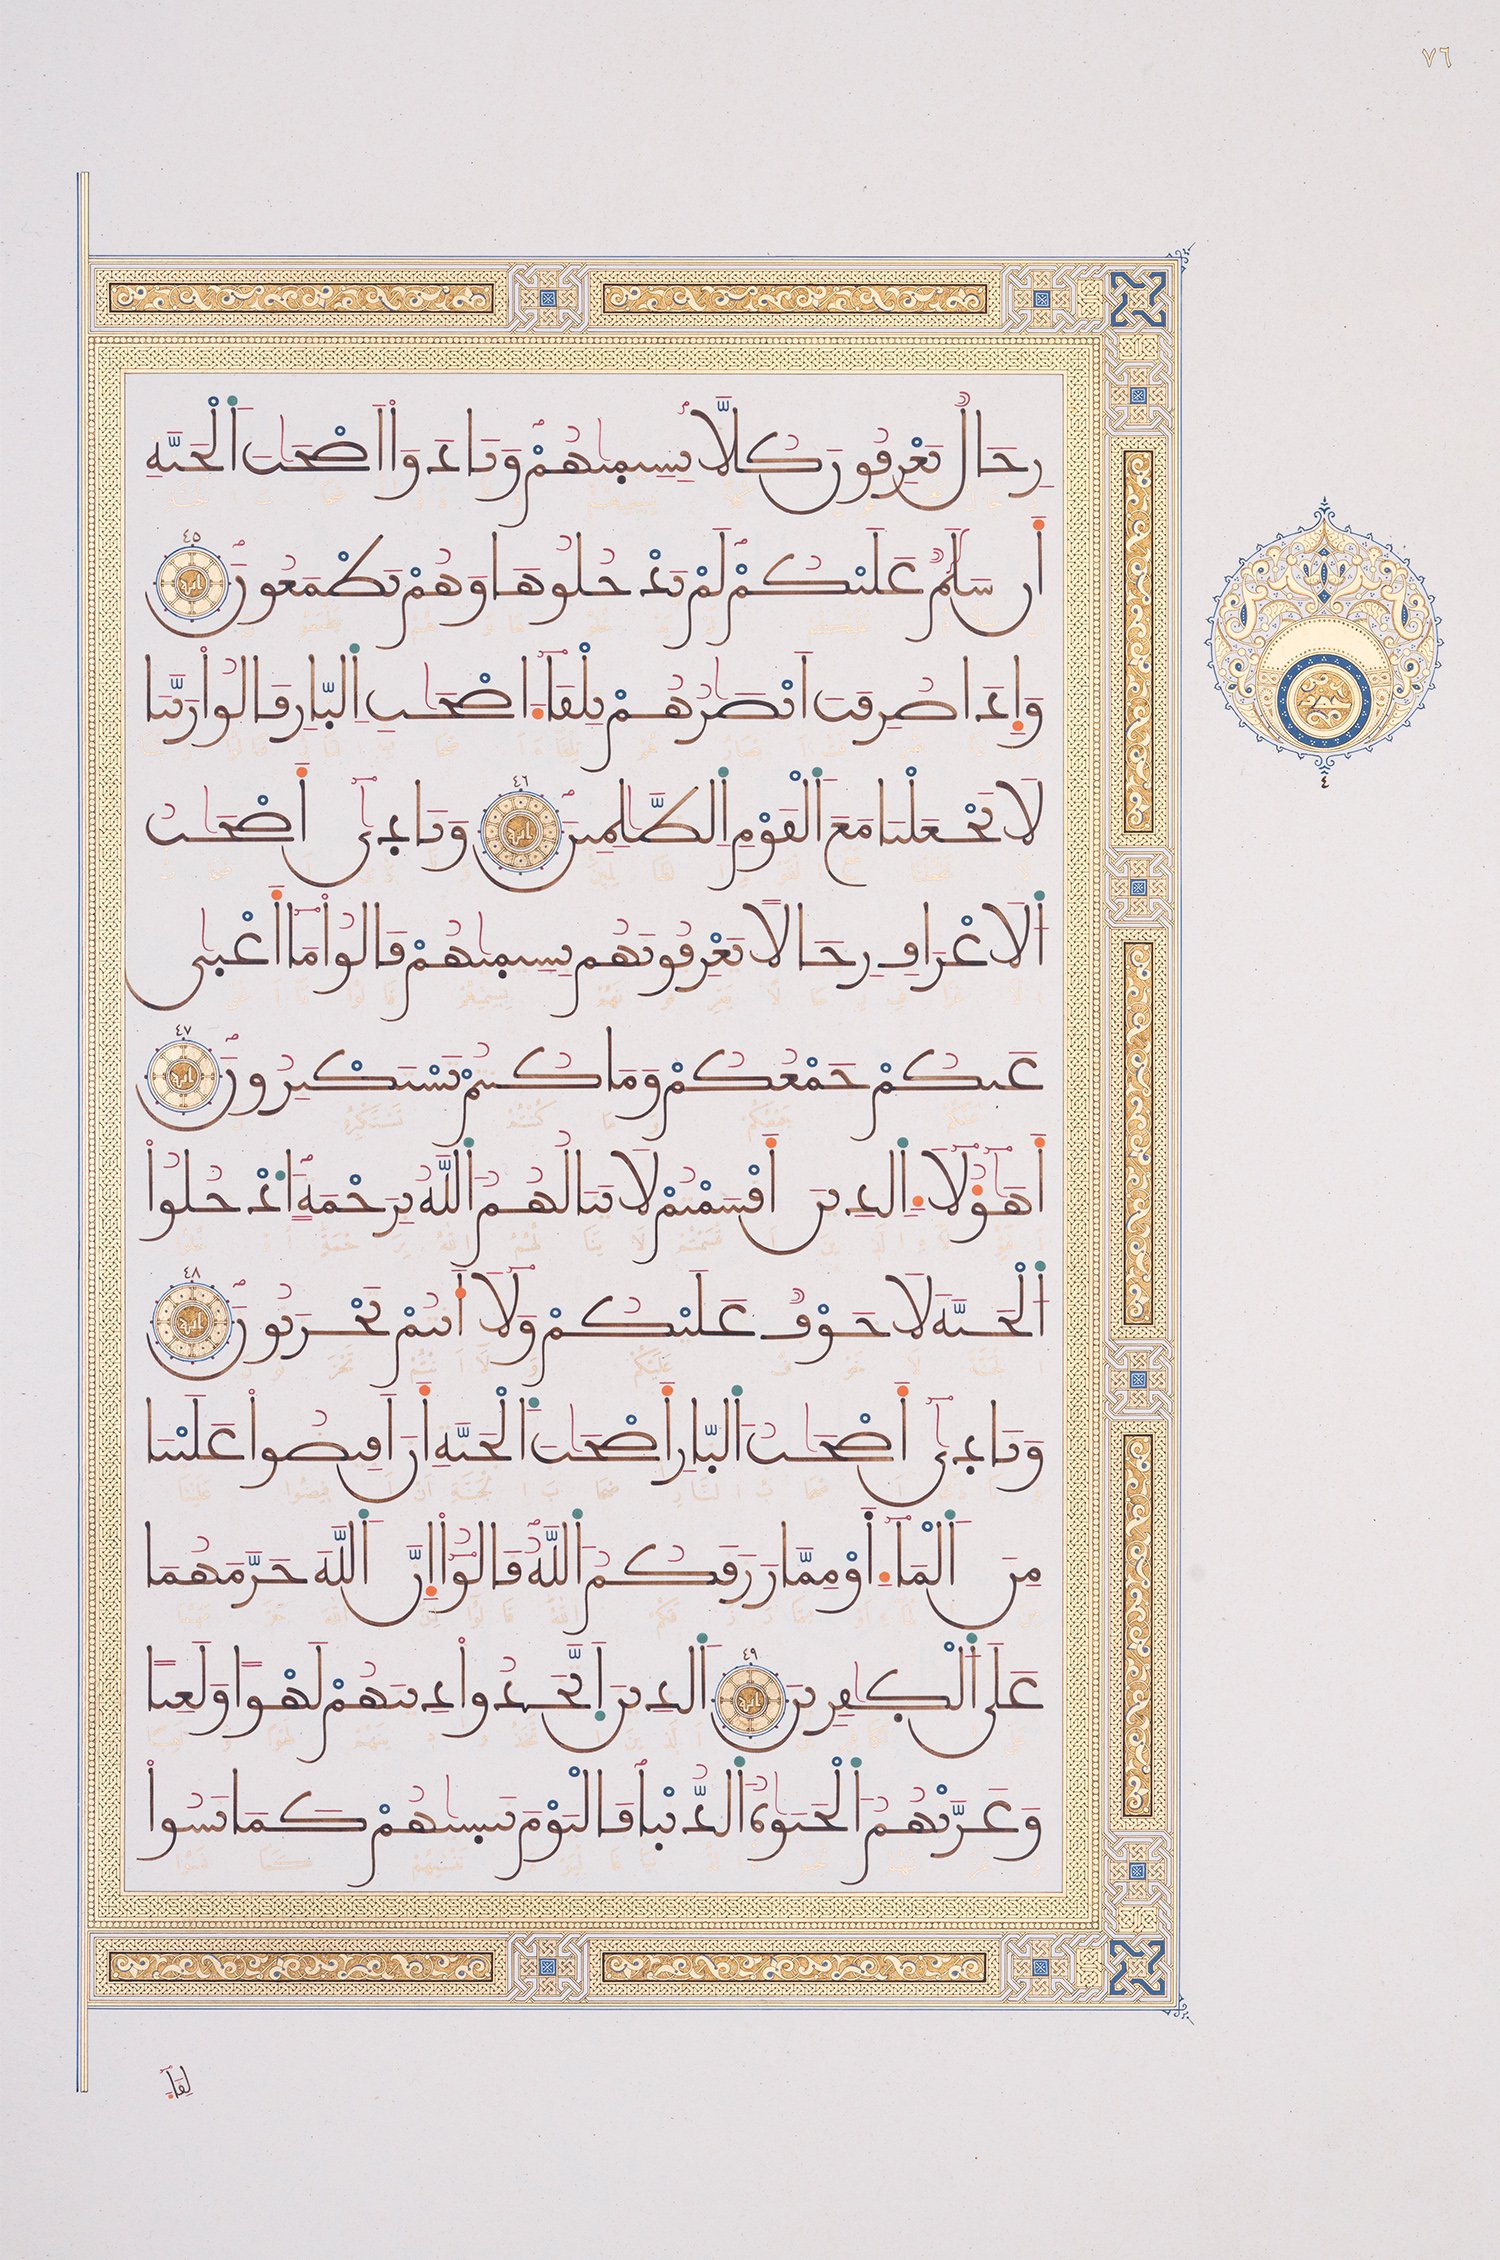 ٧٦
رِجَالٌ يَعْرِفُونَ كُلًّا بِسِيمَاهُمْ وَنَادَوْا أَصْحَابَ الْجَنَّةِ
أَن سَلَامٌ عَلَيْكُمْ لَمْ يَدْخُلُوهَا وَهُمْ يَطْمَعُونَ ٤٥
وَإِذَا صُرِفَتْ أَبْصَارُهُمْ تِلْقَاءَ أَصْحَابِ النَّارِ قَالُوا رَبَّنَا
لَا تَجْعَلْنَا مَعَ الْقَوْمِ الظَّالِمِينَ ٤٦ وَنَادَىٰ أَصْحَابُ
الْأَعْرَافِ رِجَالًا يَعْرِفُونَهُم بِسِيمَاهُمْ قَالُوا مَا أَغْنَىٰ
عَنكُمْ جَمْعُكُمْ وَمَا كُنتُمْ تَسْتَكْبِرُونَ ٤٧
أَهَٰؤُلَاءِ الَّذِينَ أَقْسَمْتُمْ لَا يَنَالُهُمُ اللَّهُ بِرَحْمَةٍ ادْخُلُوا
الْجَنَّةَ لَا خَوْفٌ عَلَيْكُمْ وَلَا أَنتُمْ تَحْزَنُونَ ٤٨
وَنَادَىٰ أَصْحَابُ النَّارِ أَصْحَابَ الْجَنَّةِ أَنْ أَفِيضُوا عَلَيْنَا
مِنَ الْمَاءِ أَوْ مِمَّا رَزَقَكُمُ اللَّهُ قَالُوا إِنَّ اللَّهَ حَرَّمَهُمَا
عَلَى الْكَافِرِينَ ٤٩ الَّذِينَ اتَّخَذُوا دِينَهُمْ لَهْوًا وَلَعِبًا
وَغَرَّتْهُمُ الْحَيَوٰةُ الدُّنْيَا فَالْيَوْمَ نَنسَاهُمْ كَمَا نَسُوا
٤
لِقَاءَ